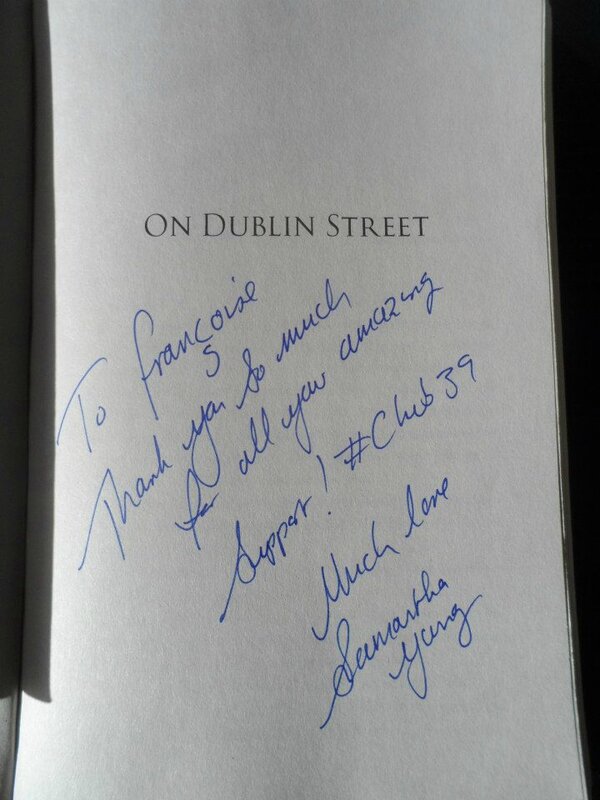 ON DUBLIN STREET
To Françoise
Thank you so much
for all your amazing
Support! #Club39
Much love
Samantha
Young